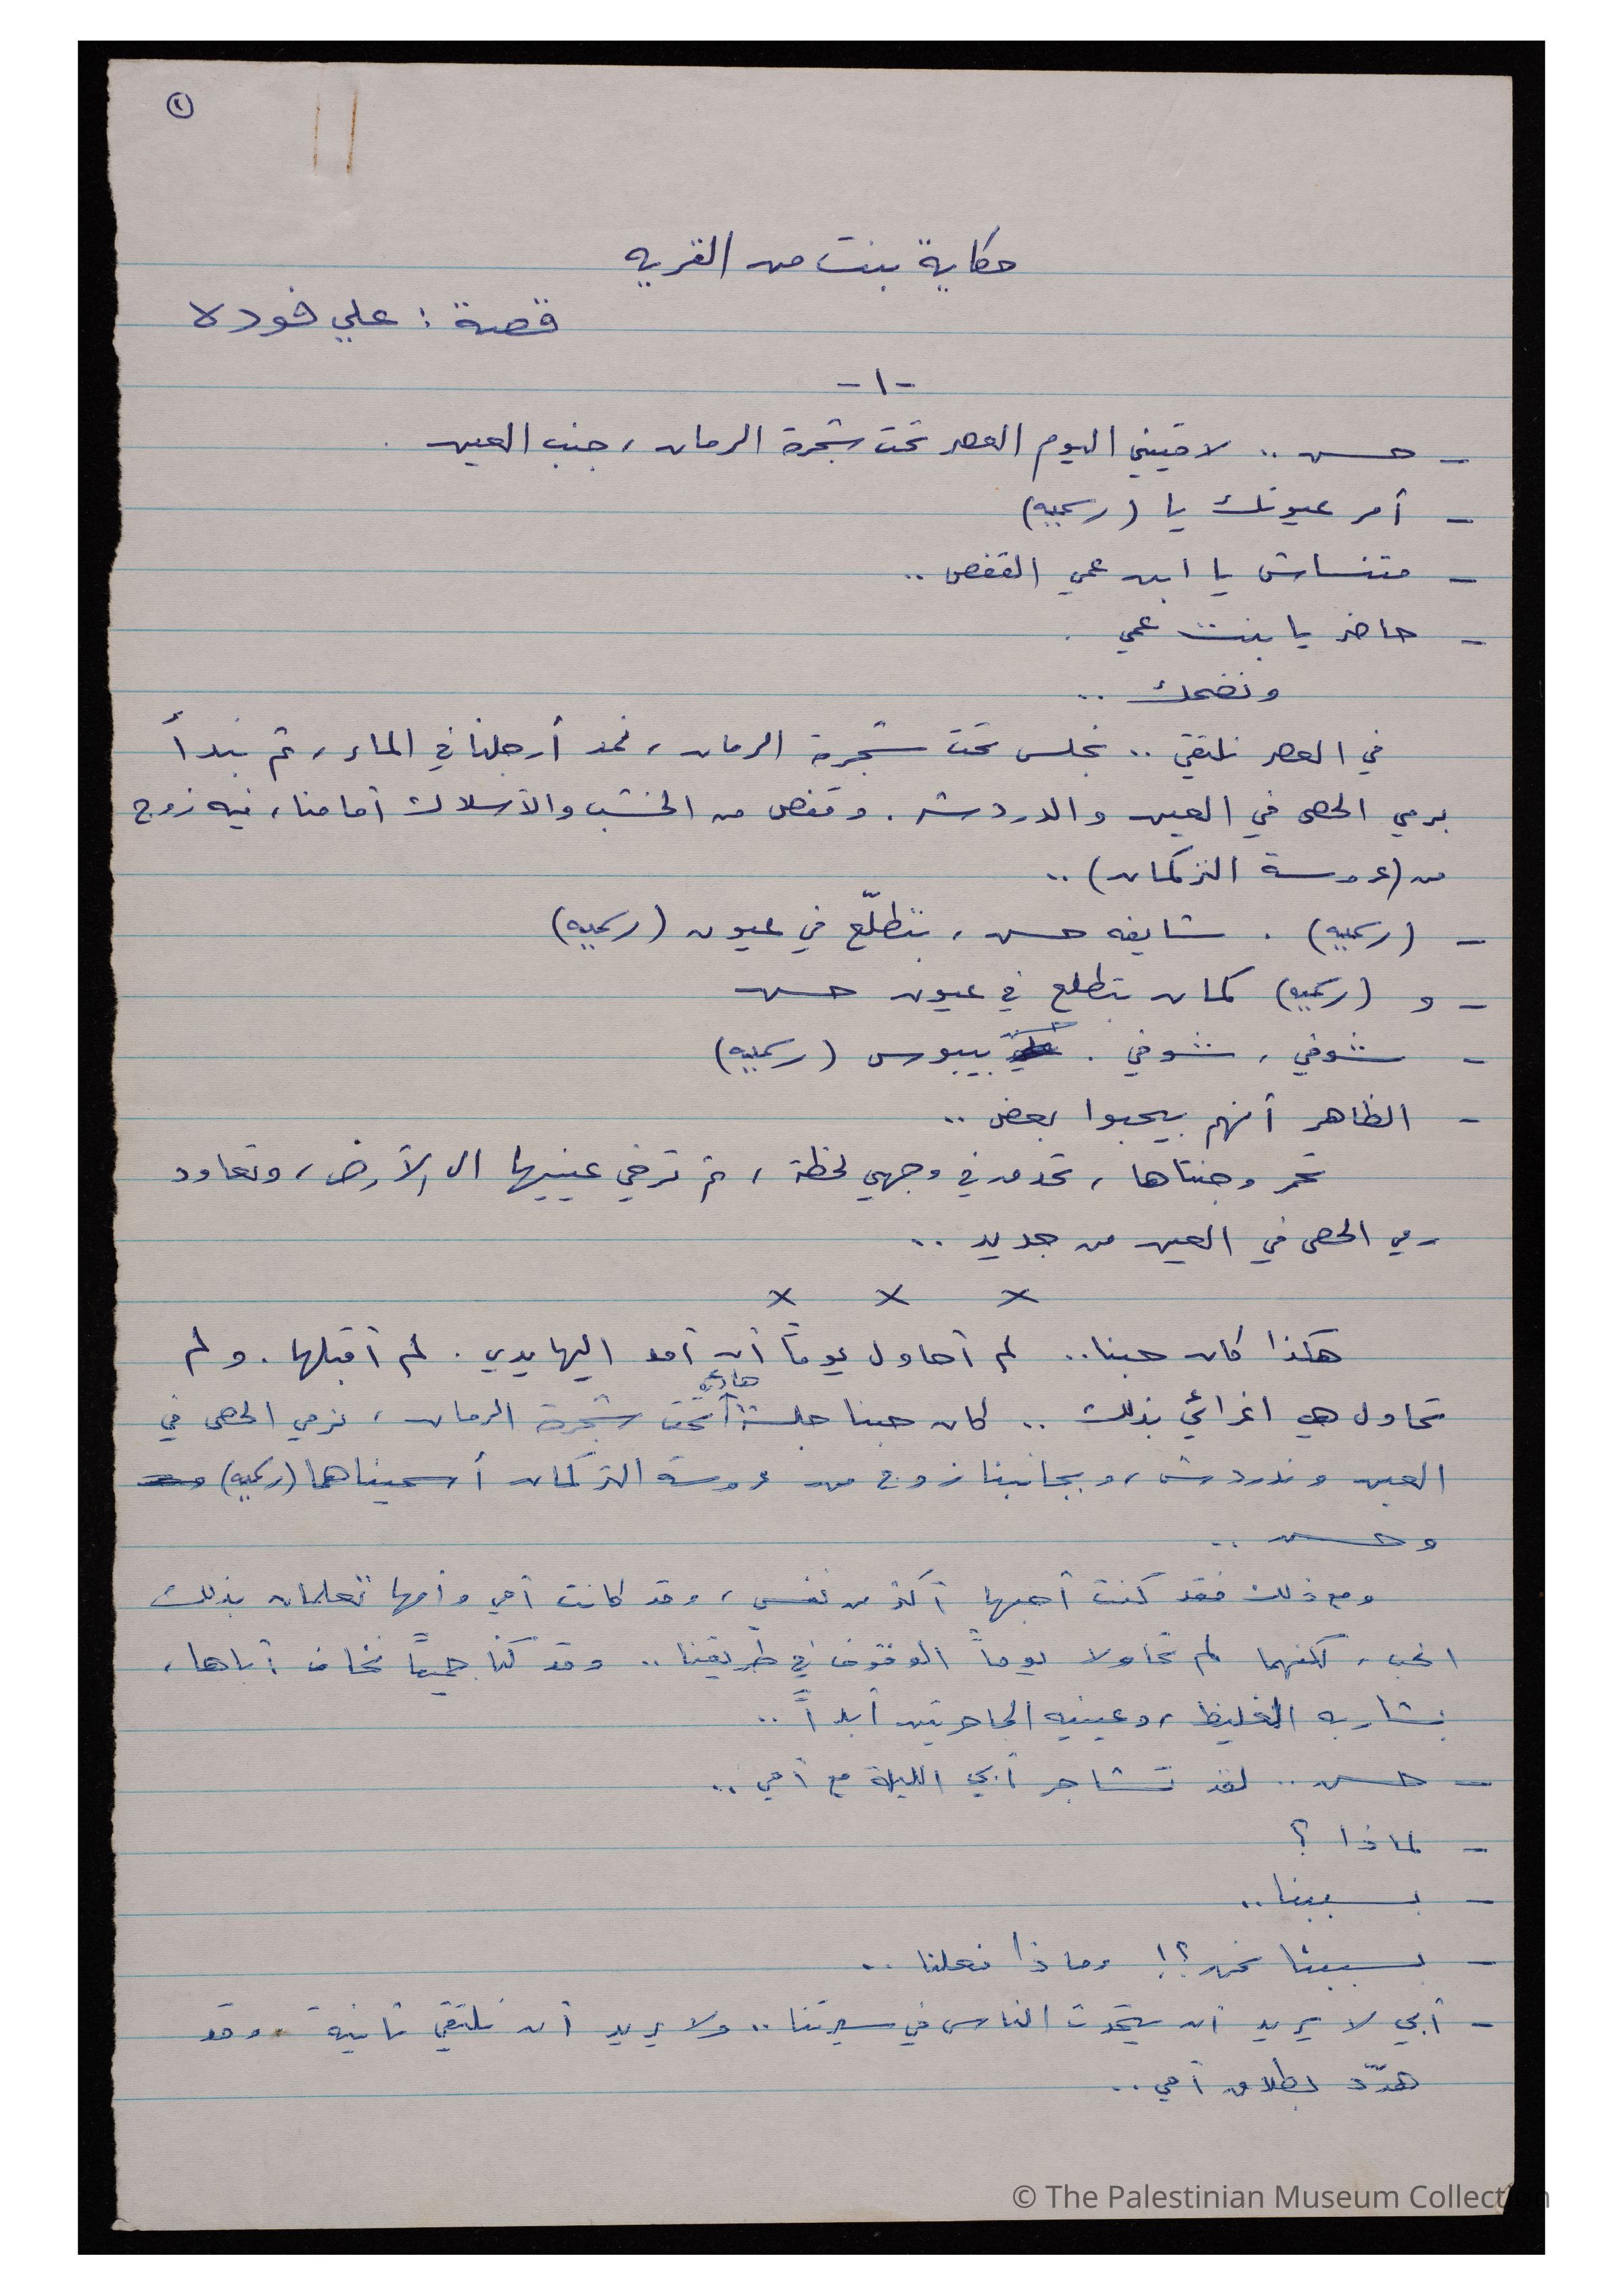 ②
حكاية بنت من القريه
قصة : علي فوده
-١-
- حسن .. لاقيني اليوم العصر تحت شجرة الرمان ، جنب العين .
- أمر عيونك يا (رسميه)
- متنساش يا ابن عمي القفص ..
- حاضر يا بنت عمي .
ونضحك ..
في العصر نلتقي .. نجلس تحت شجرة الرمان ، نمد أرجلنا في الماء ، ثم نبدأ
برمي الحصى في العين والدردشه . وقفص من الخشب والأسلاك أمامنا ، فيه زوج
من (عروسة التركمان) ..
- (رسميه) . شايفه حسن ، بتطلّع في عيون (رسميه)
- و (رسميه) كمان بتطلع في عيون حسن
- شوفي ، شوفي . حسن بيبوس (رسميه)
- الظاهر أنهم بيحبوا بعض ..
تحمر وجنتاها ، تحدق في وجهي لحظة ، ثم ترخي عينيها الى الأرض ، وتعاود
رمي الحصى في العين من جديد ..
× × ×
هكذا كان حبنا .. لم أحاول يوماً أن أمد اليها يدي . لم أقبلها . ولم
تحاول هي اغرائي بذلك .. كان حبنا جلسة هادئه تحت شجرة الرمان ، نرمي الحصى في
العين وندردش ، وبجانبنا زوج من عروسة التركمان أسميناهما (رسميه)
وحسن ..
ومع ذلك فقد كنت أحبها أكثر من نفسي ، وقد كانت أمي وأمها تعلمان بذلك
الحب ، لكنهما لم تحاولا يوماً الوقوف في طريقنا .. وقد كنا جميعاً نخاف أباها ،
بشاربه الغليظ ، وعينيه الجاحظتين أبداً ..
- حسن .. لقد تشاجر أبي الليلة مع أمي ..
- لماذا ؟
- بسببنا ..
- بسببنا نحن ؟! وماذا فعلنا ..
- أبي لا يريد أن يتحدث الناس في سيرتنا .. ولا يريد أن نلتقي ثانية . وقد
هدّد بطلاق أمي ..
© The Palestinian Museum Collection